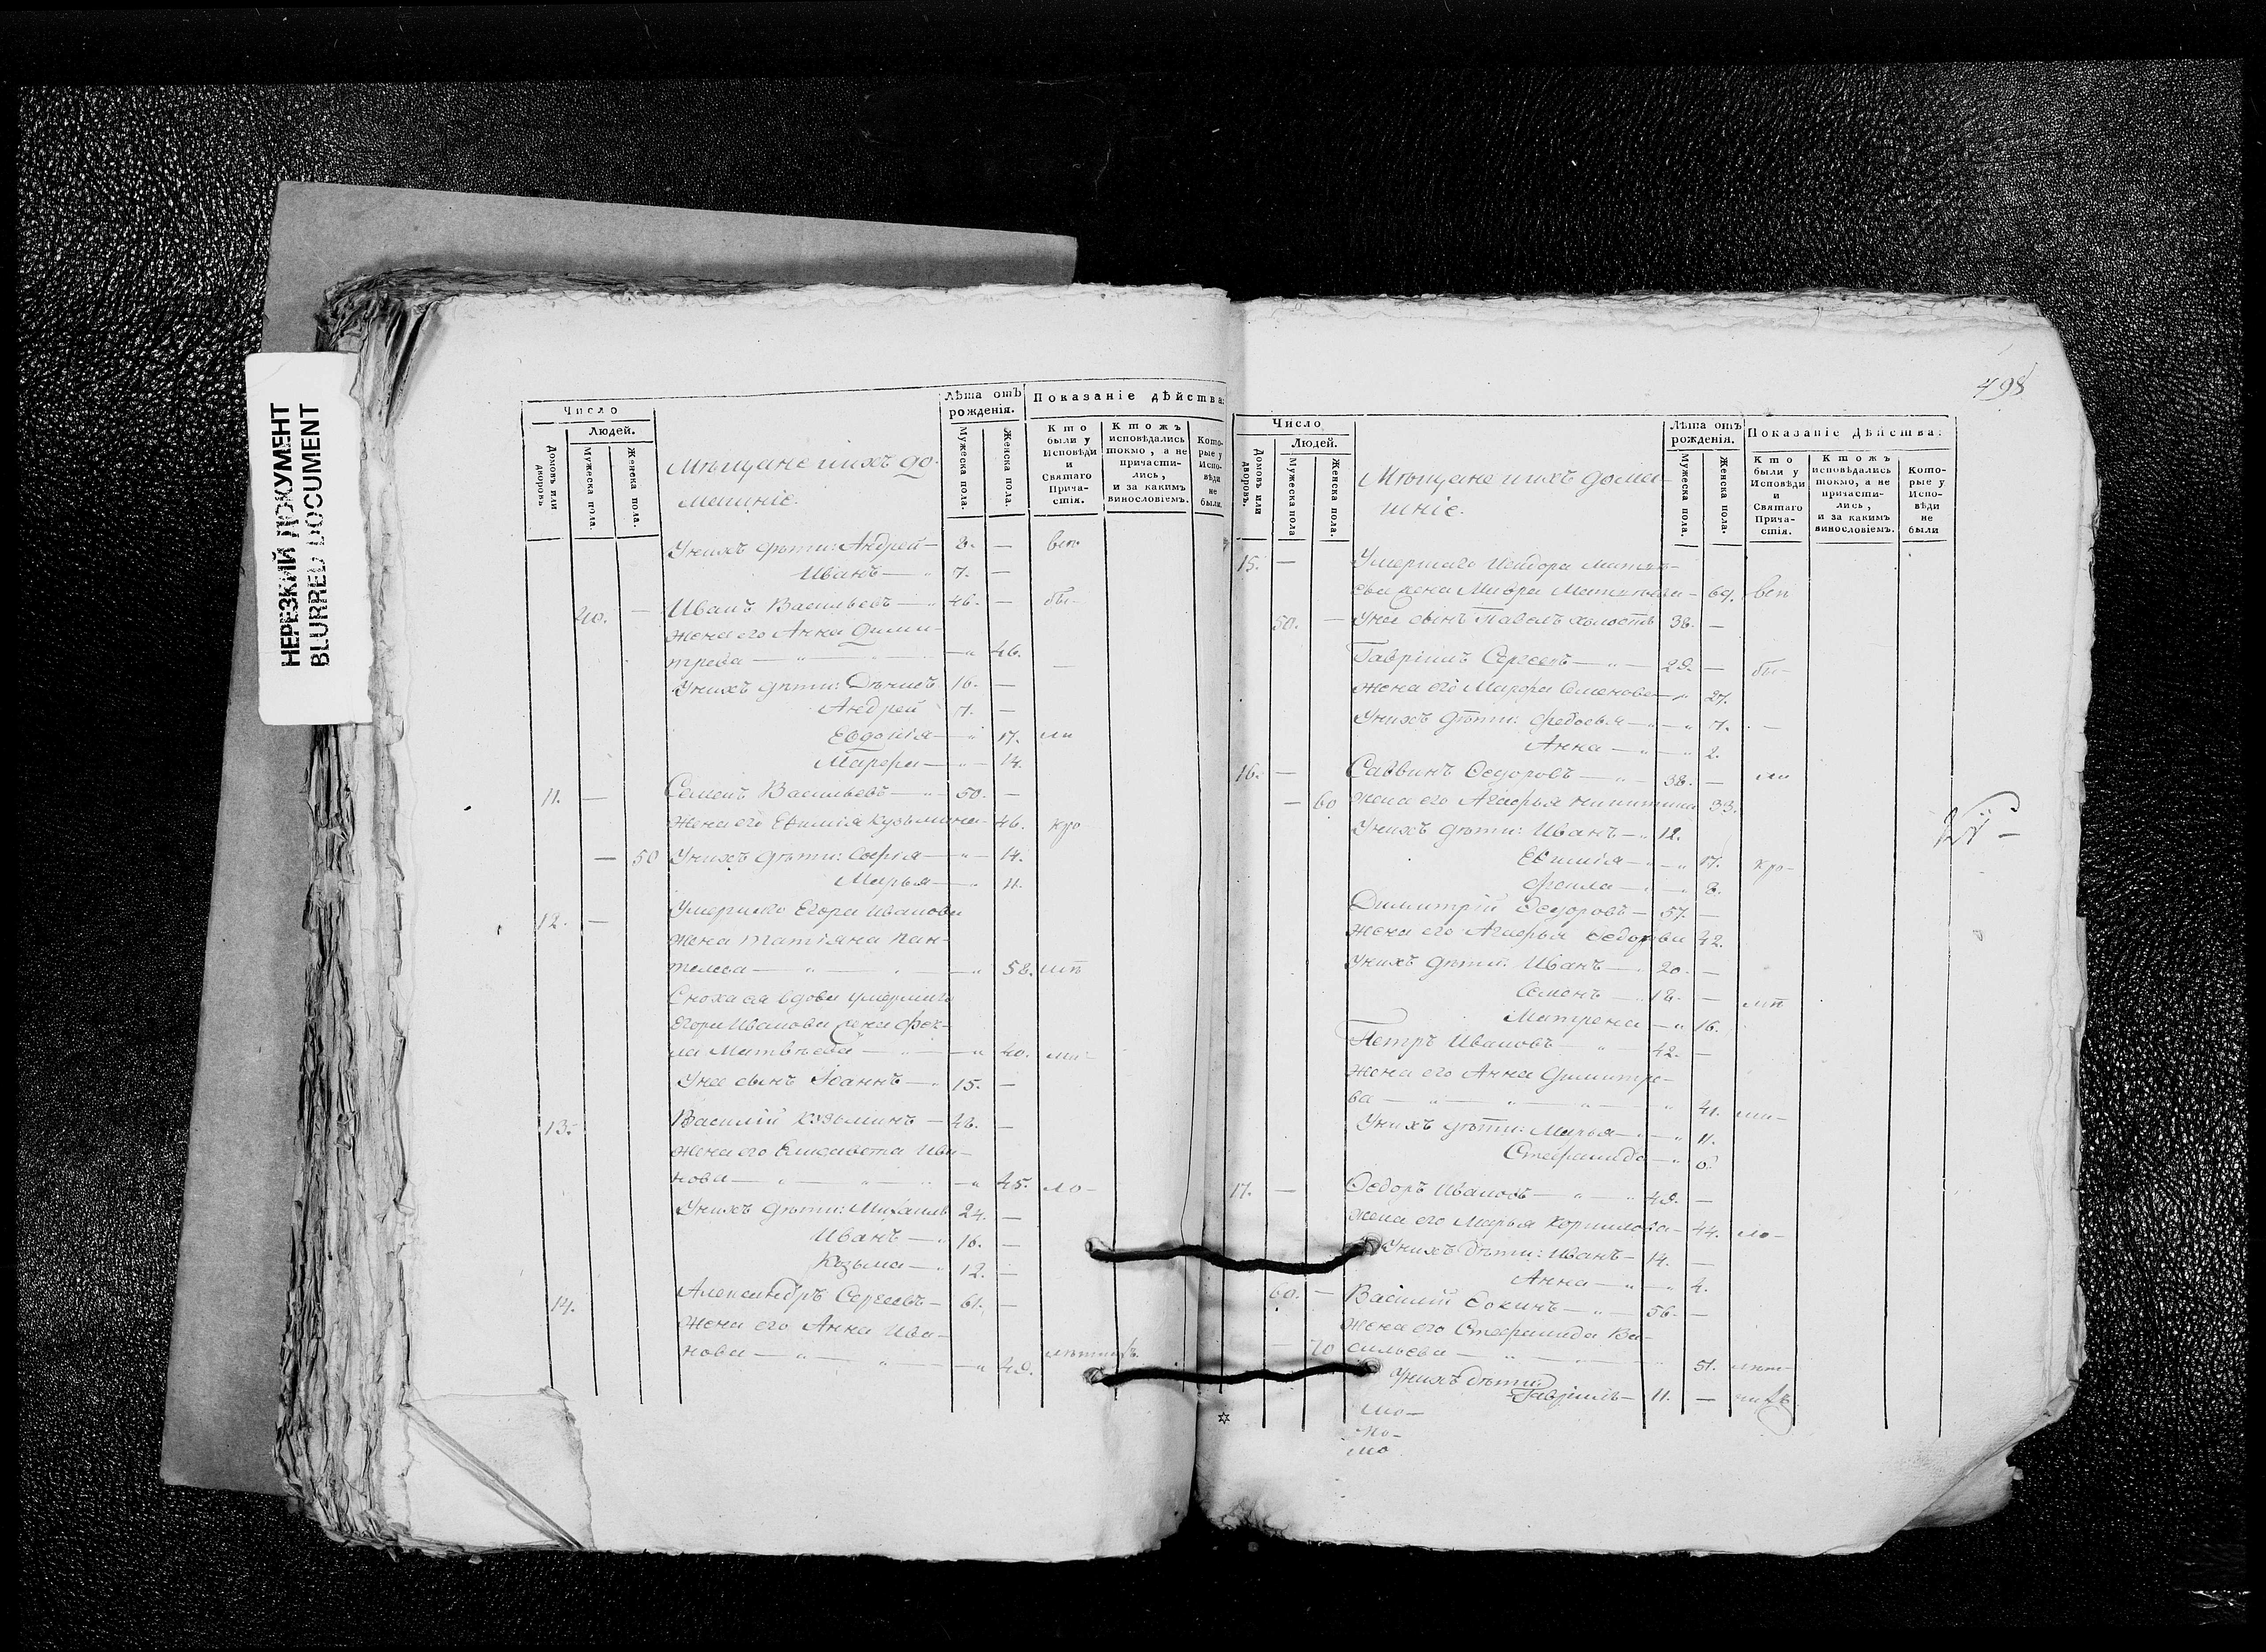 НЕРЕЗКИЙ ДОКУМЕНТ
BLURRED DOCUMENT
Число
Людей.
Домовъ или дворовъ.
Мужеска пола.
Женска пола.
Мѣщане и ихъ до-
машніе.
Лѣта отъ рожденія.
Мужеска пола.
Женска пола.
Показаніе дѣйства:
Кто были у Исповѣди и Святаго Причастія.
Ктожъ исповѣдались токмо, а не причастились, и за какимъ винословіемъ.
Которые у Исповѣди не были.
У нихъ дѣти: Андрей — 8. —
Иванъ — 7. —
40. — Иванъ Васильевъ — 46. — бы-
жена его Анна Дими-
трева — 46. —
У нихъ дѣти: 16. —
Андрей 7. —
Евдокія — 17. ли
Марфа — 14.
11. — Семенъ Васильевъ — 50. —
жена его Евфимія Кузьмина — 46. кро
— 50 У нихъ дѣти: Софія — 14.
Марья — 11.
12. — Умершаго Егора Иванова
жена Татіяна Пан-
телева — 58. мѣ
Сноха ея вдова умершаго
Егора Иванова жена Фек-
ла Матвѣева — 40.
У нея сынъ Іоаннъ — 15. —
13. Василій Козьминъ — 48. —
жена его Елисавета Ива-
нова — 45. ло-
У нихъ дѣти: Михаилъ 24. —
Иванъ — 16. —
Козьма — 12. —
14. Александръ Сергеевъ — 61. —
жена его Анна Ива-
нова — 49.
498
Число
Людей.
Домовъ или дворовъ.
Мужеска пола
Женска пола.
Мѣщане и ихъ дома-
шніе.
Лѣта отъ рожденія.
Мужеска пола.
Женска пола.
Показаніе Дѣйства:
Кто были у Исповѣди и Святаго Причастія.
Ктожъ исповѣдались токмо, а не причастились, и за какимъ винословіемъ.
Которые у Исповѣди не были
15. — Умершаго
жена 69.
50. — У нея сынъ Павелъ холостъ 38. —
Гавріилъ Сергеевъ — 29. — бы-
жена его Марфа Семенова — 27.
У нихъ дѣти: Федосья — 7. —
Анна — 2.
16. — Саввинъ Ѳедоровъ — 38. — ли
— 60 жена его Агафья Никитина 33.
У нихъ дѣти: Иванъ — 12.
Евфимія — 17. кро-
Фекла — 8.
Димитрій Ѳедоровъ — 57. —
жена его Агафья Ѳедорова 42.
У нихъ дѣти: Иванъ — 20. —
Семенъ — 18. — мѣ
Матрена — 16.
Петръ Ивановъ — 42. —
жена его Анна Димитре-
ва — 41.
У нихъ дѣти: Марья — 11.
Стефанида — 6.
17. — Ѳедоръ Ивановъ — 49. —
жена его Марья Корнилова — 44. ло-
У нихъ дѣти: Иванъ — 14. —
Анна — 4.
60. — Василій Ѳокинъ — 56. —
жена его Стефанида Ва-
— 70 сильева — 51.
У нихъ дѣти
Гавріилъ — 11. —